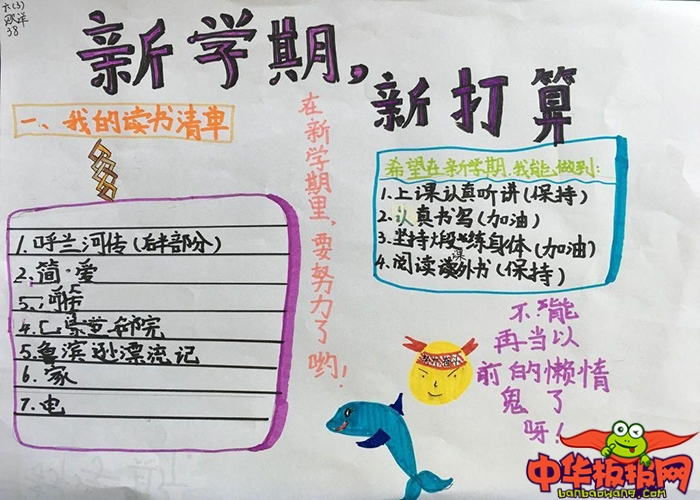 六(3)
38
新学期,
新打算
一、我的读书清单
1.呼兰河传(后半部分)
2.简·爱
5.呼
4.
5.鲁滨逊漂流记
6.家
7.电
在新学期里,要努力了哟!
希望在新学期,我能做到:
1.上课认真听讲(保持)
2.认真书写(加油)
3.坚持煅炼身体(加油)
4.阅读课外书(保持)
不能
再当以
前的懒惰
鬼了
呀!
中华板报网
banbaowang.com